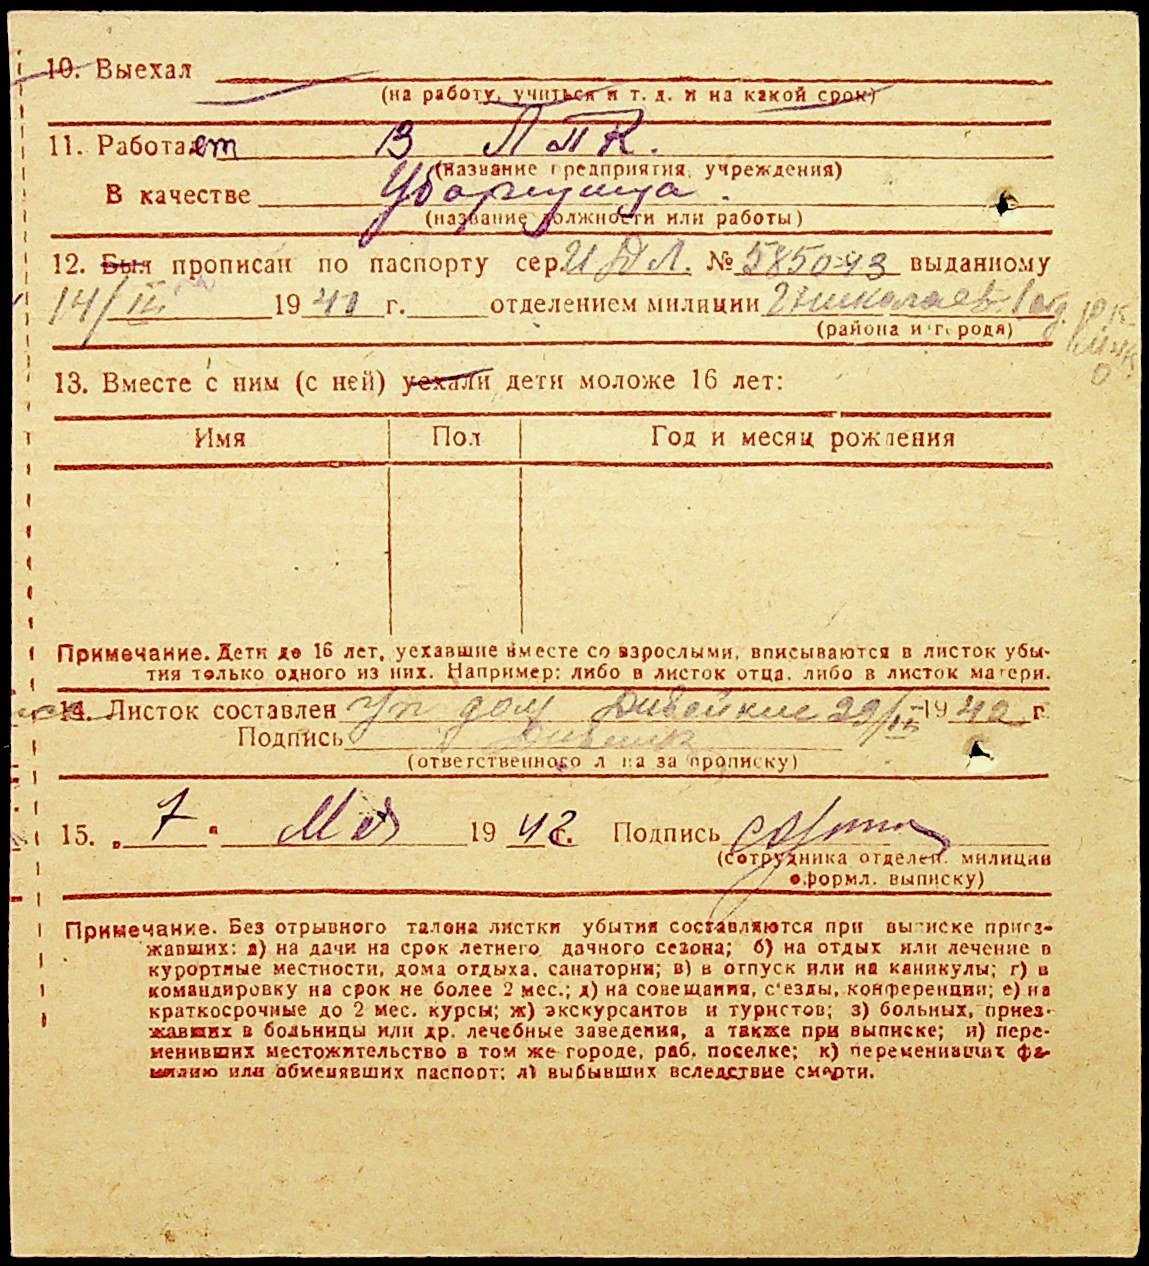 10. Выехал
(на работу, учиться и т. д. и на какой срок)
11. Работает в ЛПК.
(название предприятия, учреждения)
В качестве Уборщица.
(название должности или работы)
12. Был прописан по паспорту сер. И ДЛ. № 585043 выданному
14/III 1941 г. отделением милиции г Николаев
(района и города)
13. Вместе с ним (с ней) уехали дети моложе 16 лет:
Имя Пол Год и месяц рождения
Примечание. Дети до 16 лет, уехавшие вместе со взрослыми, вписываются в листок убы-
тия только одного из них. Например: либо в листок отца, либо в листок матери.
14. Листок составлен Уп дом 29/IV 1942 г
Подпись
(ответственного лица за прописку)
15. „ 7 " Мая 1942 г. Подпись
(сотрудника отделен. милиции
оформл. выписку)
Примечание. Без отрывного талона листки убытия составляются при выписке приез-
жавших: а) на дачи на срок летнего дачного сезона; б) на отдых или лечение в
курортные местности, дома отдыха, санатории; в) в отпуск или на каникулы; г) в
командировку на срок не более 2 мес.; д) на совещания, с'езды, конференции; е) на
краткосрочные до 2 мес. курсы; ж) экскурсантов и туристов; з) больных, приез-
жавших в больницы или др. лечебные заведения, а также при выписке; и) пере-
менивших местожительство в том же городе, раб. поселке; к) переменивших фа-
милию или обменявших паспорт; л) выбывших вследствие смерти.